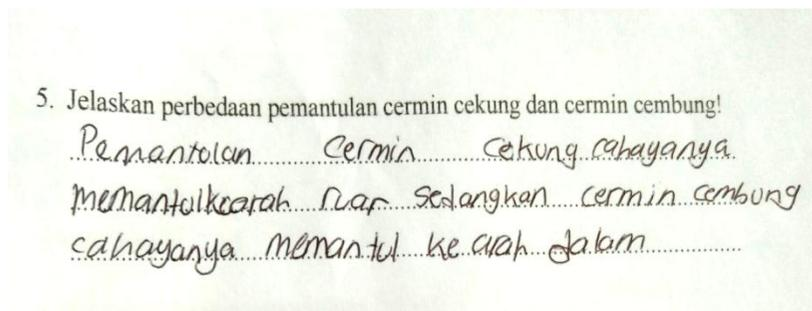 5. Jelaskan perbedaan pemantulan cermin cekung dan cermin cembung!
Pemantolan cermin cekung cahayanya
memantulkearah luar sedangkan cermin cembung
cahayanya memantul ke arah dalam